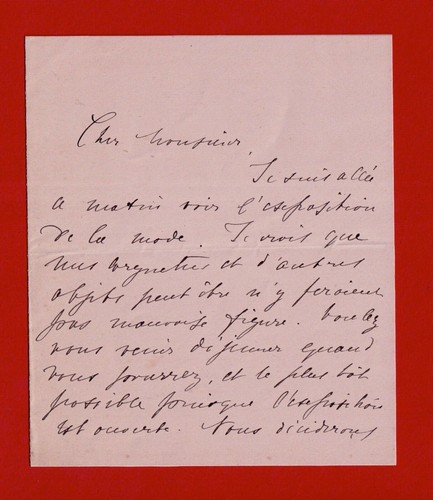 Cher Monsieur,
Je suis allée
ce matin voir l'exposition
de la mode. Je crois que
mes lorgnettes et d'autres
objets peut être n'y feraient
pas mauvaise figure. Voulez
vous venir déjeuner quand
vous pourrez, et le plus tôt
possible puisque l'exposition
est ouverte. Nous déciderons